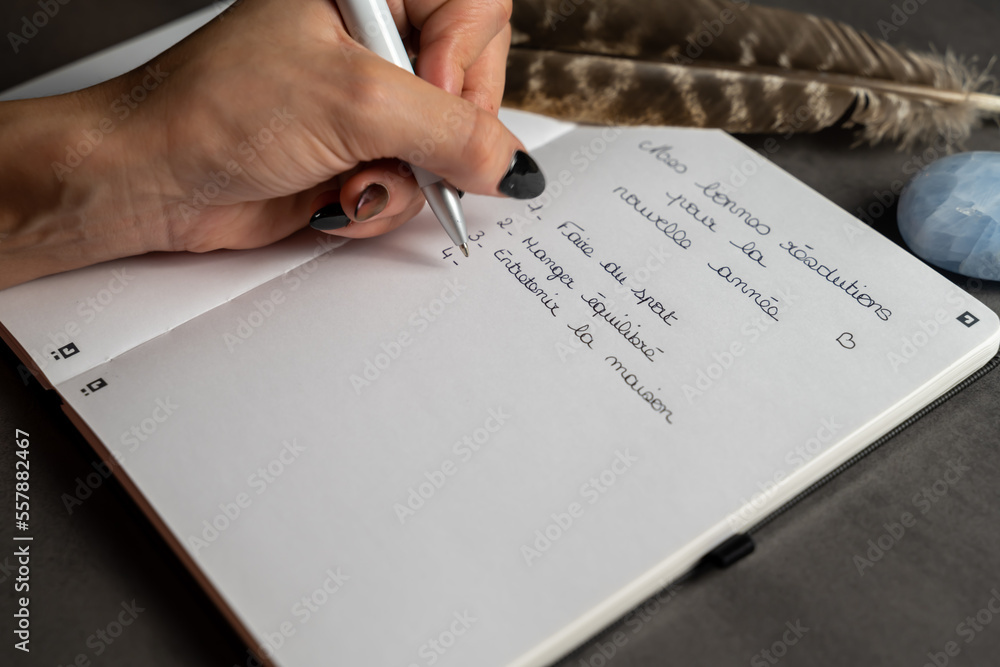 Mes bonnes résolutions
pour la
nouvelle année
1- Faire du sport
2- Manger équilibré
3- Entretenir la maison
4-
Adobe Stock | #557882467